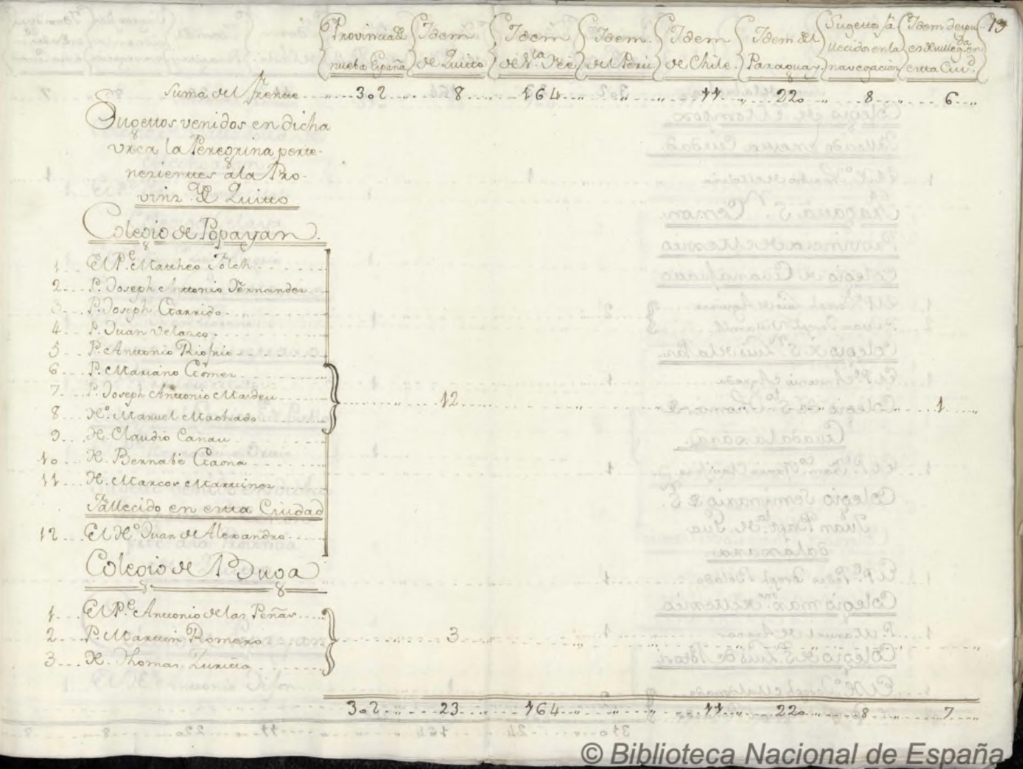 Provincia de nueba España
Idem de Quitto
Idem de Sta. Fee
Idem del Perú
Idem de Chile
Idem del Paraguay
Sugettos fallecidos en la navegacion
Idem despues en esta Ciud.
13
Suma del frente 302 8 164 11 220 8 6
Sugettos venidos en dicha
urca la Peregrina perte-
necientes á la Pro-
vinz.a de Quitto
Colegio de Popayan.
1 El Pe. Mattheo Folch
2 P. Joseph Anttonio Fernandez
3 P. Joseph Garrido
4 P. Juan Velasco
5 P. Anttonio Riofrio
6 P. Mariano Gomez
7 P. Joseph Anttonio Masdeu 12 1
8 Ho. Manuel Machado
9 H. Claudio Canau
10 H. Bernabé Gaona
11 H. Marcos Marttinez
Fallecido en esta Ciudad
12 El Ho. Juan de Alexandro
Colegio de Buga
1 El Pe. Anttonio de las Peñas
2 P. Marttin Romero 3
3 H. Thomas Zuritta
302 23 164 11 220 8 7
© Biblioteca Nacional de España